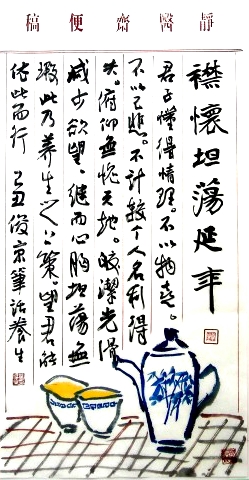 靜醫齋便稿
襟懷坦蕩延年
君子懂得情理。不以物喜。
不以己悲。不计較个人名利得
失。俯仰無愧天地。潔光
减少欲望，继而心胸坦蕩無
瑕此乃养生之上策。望君能
依此而行 丑俊京筆话養生